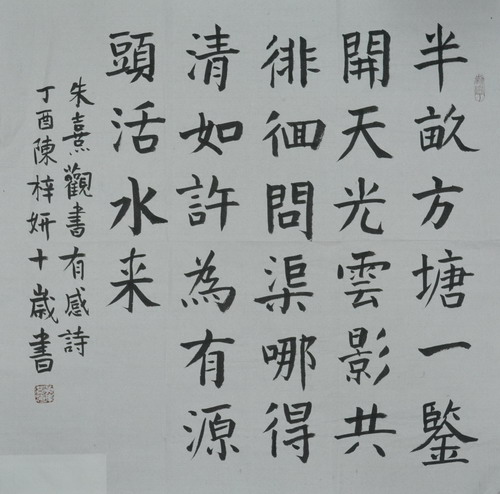 半畝方塘一鑒
開天光雲影共
徘徊問渠哪得
清如許為有源
頭活水来
朱熹觀書有感詩
丁酉陳梓妍十歲書